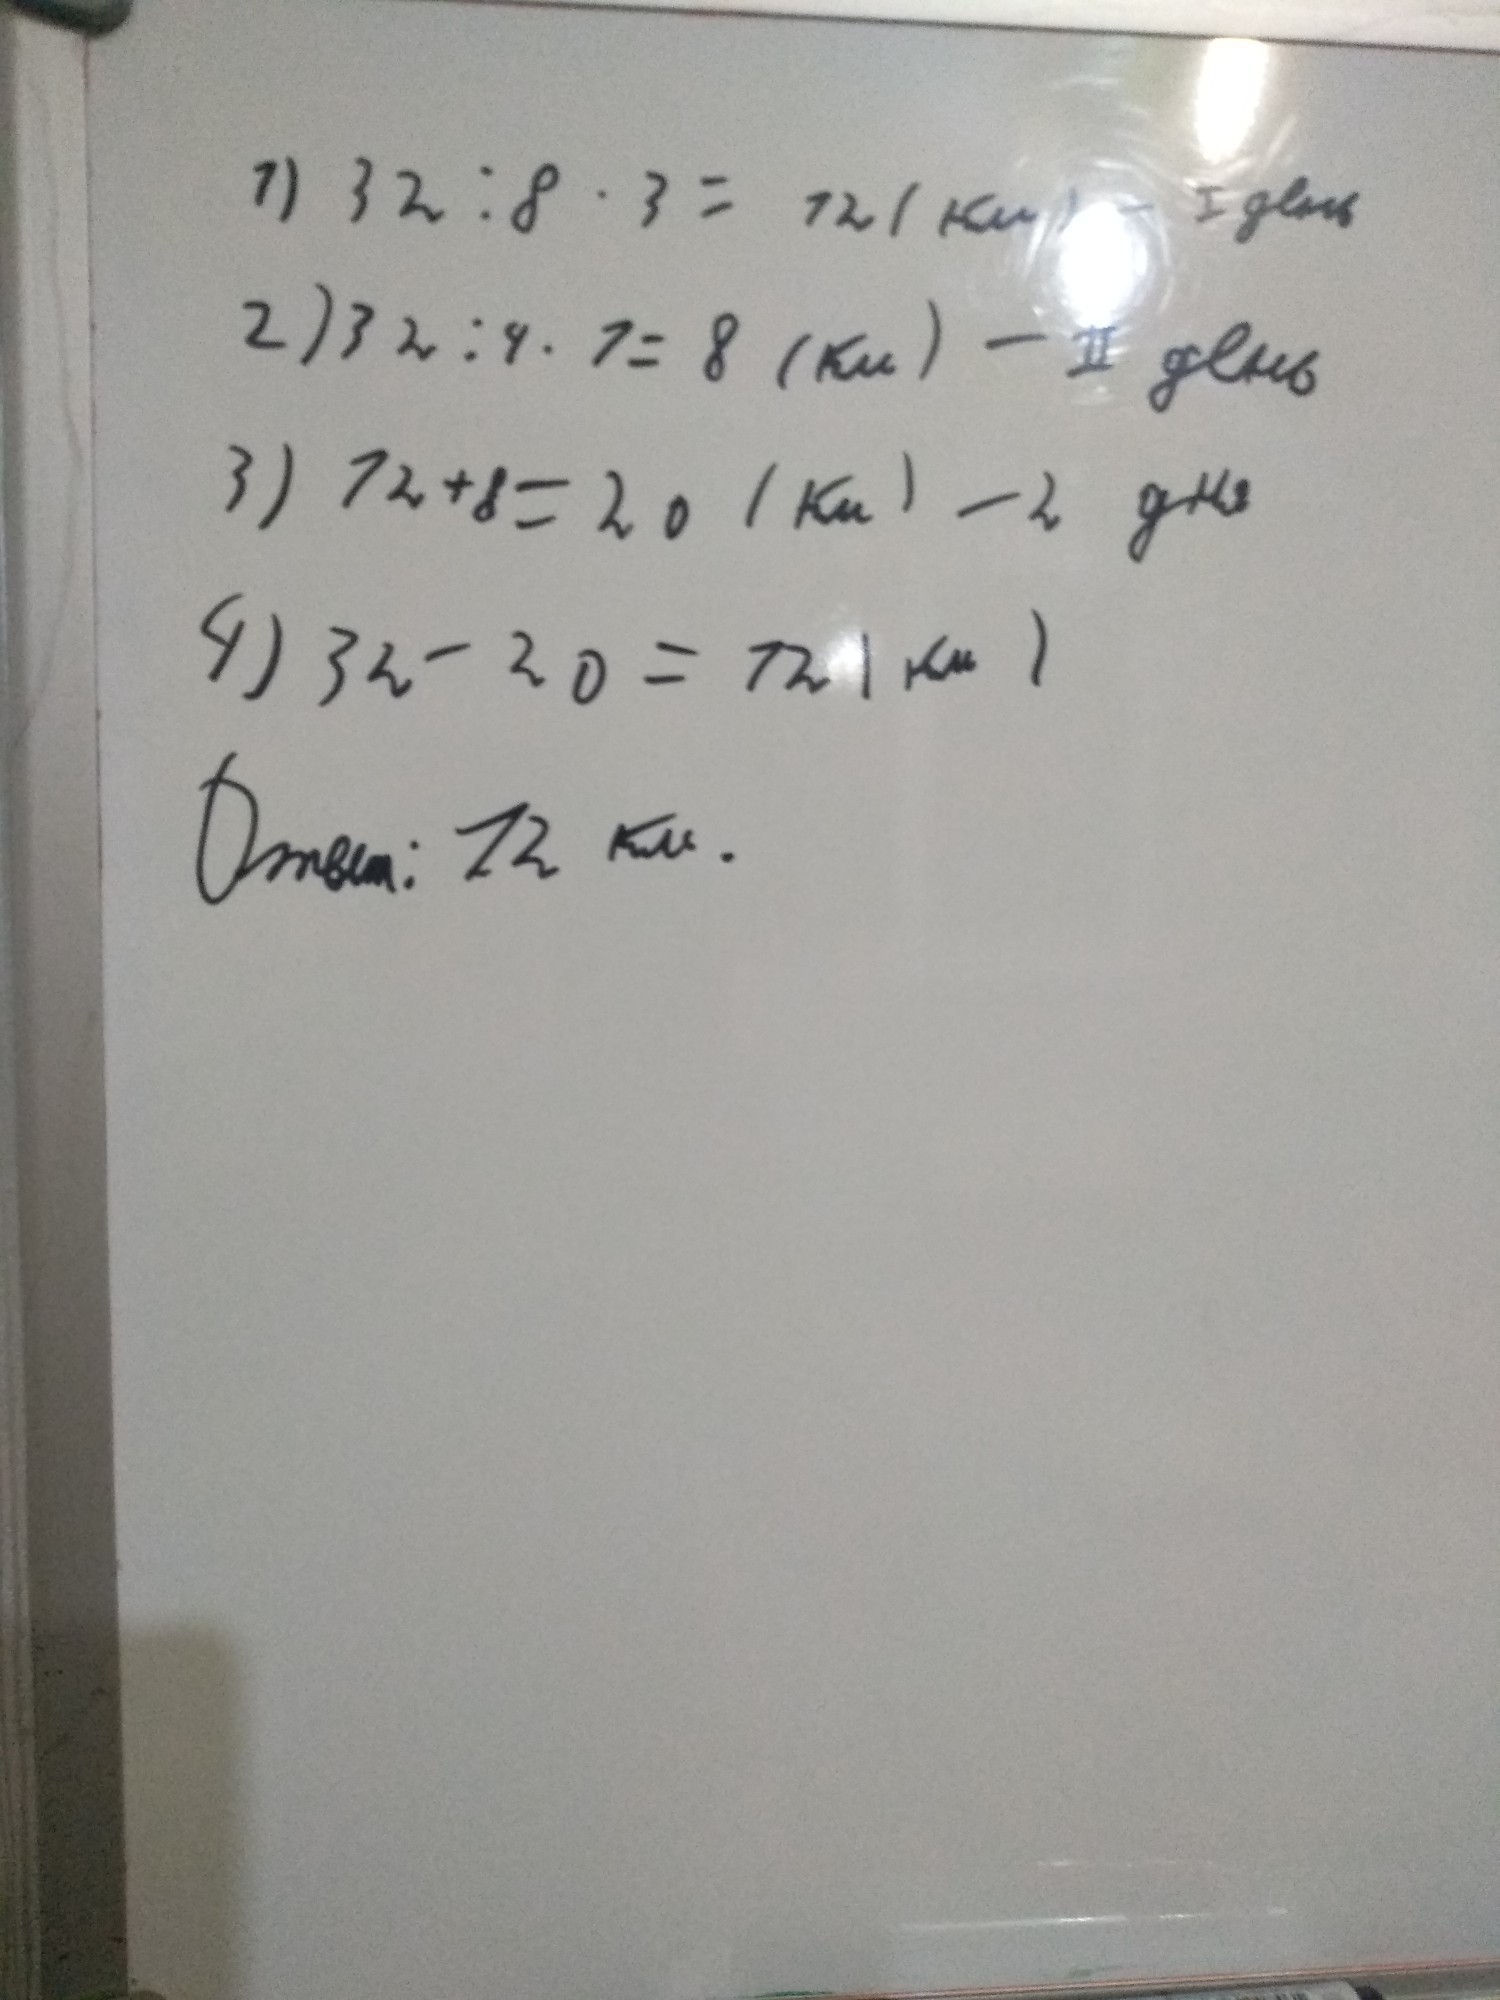 1) 32 : 8 · 3 = 12 (км) - I день
2) 32 : 4 · 1 = 8 (км) - II день
3) 12 + 8 = 20 (км) - 2 дня
4) 32 - 20 = 12 (км)
Ответ: 12 км.